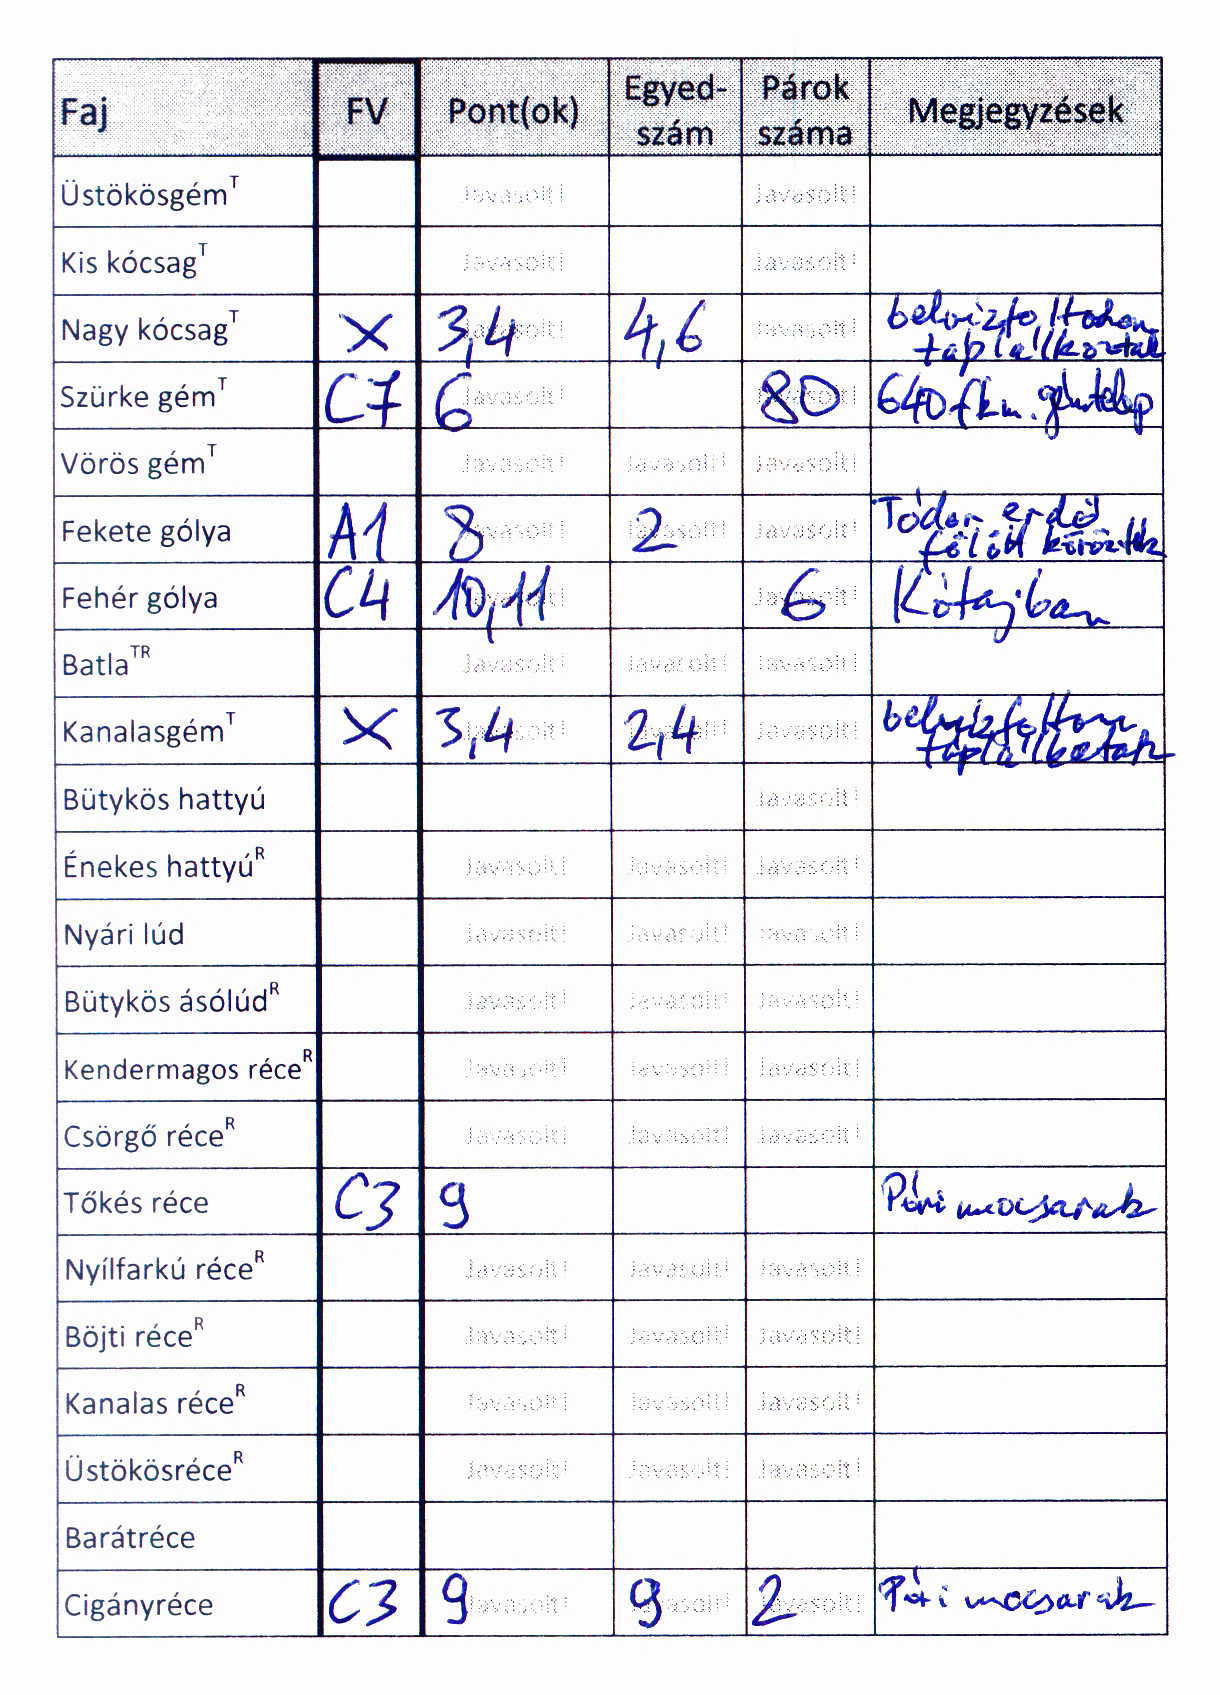 Faj FV Pont(ok) Egyed-szám Párok száma Megjegyzések
Üstökösgém^T Javasolt! Javasolt!
Kis kócsag^T Javasolt! Javasolt!
Nagy kócsag^T X 3,4 Javasolt! 4,6 Javasolt! belvízfoltodon
táplálkoztak
Szürke gém^T C7 6 Javasolt! 80 Javasolt! 640 fkm. gémtelep
Vörös gém^T Javasolt! Javasolt! Javasolt!
Fekete gólya A1 8 Javasolt! 2 Javasolt! Javasolt! Tódor erdő
fölött köröztek
Fehér gólya C4 10,11 Javasolt! 6 Javasolt! Kótajban
Batla^TR Javasolt! Javasolt! Javasolt!
Kanalasgém^T X 3,4 Javasolt! 2,4 Javasolt! Javasolt! belvízfolton
táplálkoztak
Bütykös hattyú Javasolt!
Énekes hattyú^R Javasolt! Javasolt! Javasolt!
Nyári lúd Javasolt! Javasolt! Javasolt!
Bütykös ásólúd^R Javasolt! Javasolt! Javasolt!
Kendermagos réce^R Javasolt! Javasolt! Javasolt!
Csörgő réce^R Javasolt! Javasolt! Javasolt!
Tőkés réce C3 9 Póri mocsarak
Nyílfarkú réce^R Javasolt! Javasolt! Javasolt!
Böjti réce^R Javasolt! Javasolt! Javasolt!
Kanalas réce^R Javasolt! Javasolt! Javasolt!
Üstökösréce^R Javasolt! Javasolt! Javasolt!
Barátréce
Cigányréce C3 9 Javasolt! 9 Javasolt! 2 Javasolt! Póri mocsarak